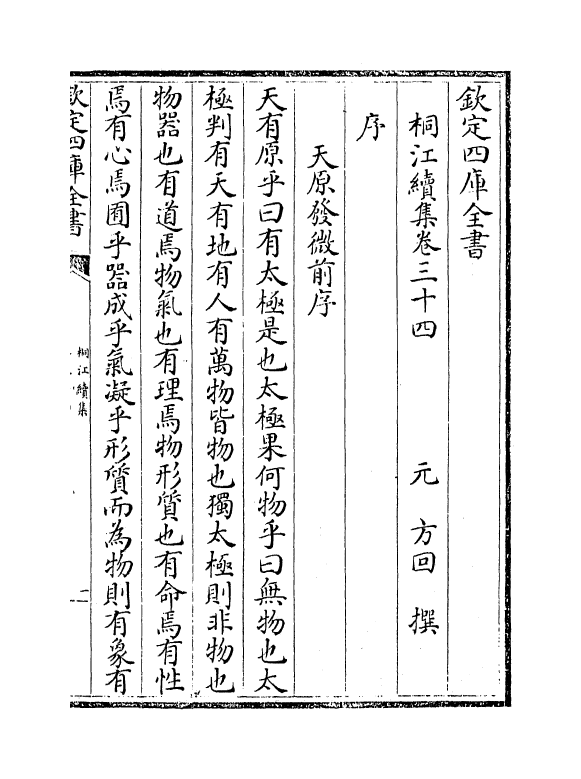 欽定四庫全書
桐江續集卷三十四
元 方回 撰
序
天原發微前序
天有原乎曰有太極是也太極果何物乎曰無物也太
極判有天有地有人有萬物皆物也獨太極則非物也
物器也有道焉物氣也有理焉物形質也有命焉有性
焉有心焉囿乎器成乎氣凝乎形質而為物則有象有
欽定四庫全書
桐江續集